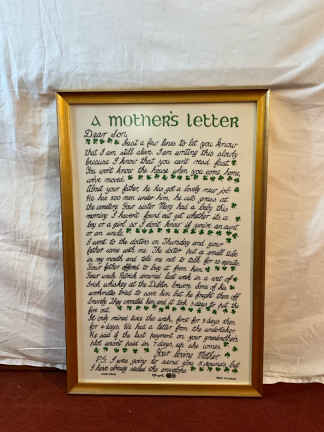 a mother's letter
Dear Son,
Just a few lines to let you know
that I am still alive. I am writing this slowly
because I know that you can't read fast
You won't know the house when you come home,
we've moved.
About your father, he has got a lovely new job.
He has 500 men under him, he cuts grass at
the cemetery. Your sister Mary had a baby this
morning I haven't found out yet whether its a
boy or a girl so I don't know if you're an aunt
or an uncle.
I went to the doctors on Thursday and your
father came with me. The doctor put a small tube
in my mouth and told me not to talk for 10 minutes.
Your father offered to buy it from him.
Your uncle Patrick drowned last week in a vat of
Irish whiskey at the Dublin brewery. Some of his
workmates tried to save him but he fought them off
bravely. They cremated him and it took 3 days to put the
fire out.
It only rained twice this week, first for 3 days then
for 4 days. We had a letter from the undertaker.
He said if the last payment on your grandmother's
plot wasn't paid in 7 days, up she comes.
Your loving Mother
P.S. I was going to send you
I have already sealed the envelope